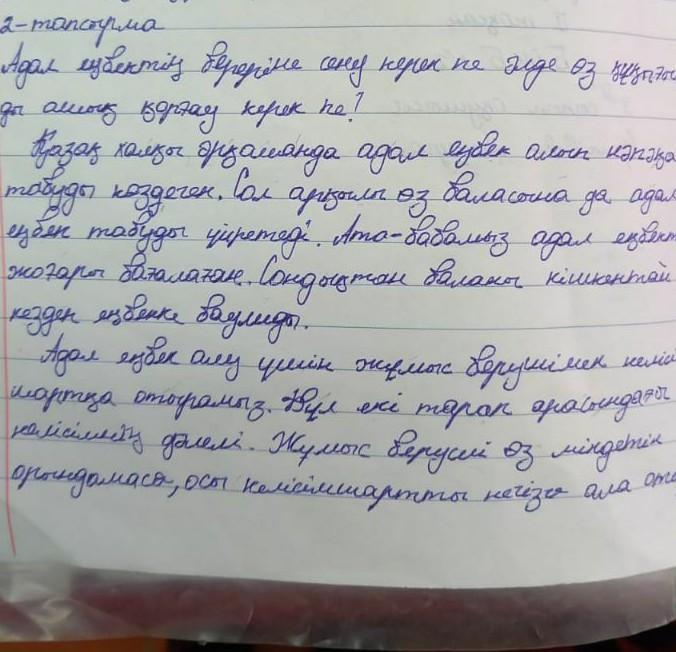 2-тапсырма
Адал еңбектің берерііне сену керек пе әлде өз құқығы
ды ашық қорғау керек пе?
Қазақ халқы әрқашанда адал еңбек алып нәпақа
табуды көздеген. Сол арқылы өз баласына да адал
еңбек табуды үйретеді. Ата-бабамыз адал еңбект
жоғары бағалаған. Сондықтан баланы кішкентай
кезден еңбекке баулиды.
Адал еңбек алу үшін жұмыс берушімен келісі
шартқа отырамыз. Бұл екі тарап арасындағы
келісімнің дәлелі. Жұмыс беруші өз міндетін
орындамаса, осы келісімшартты негізге ала оты